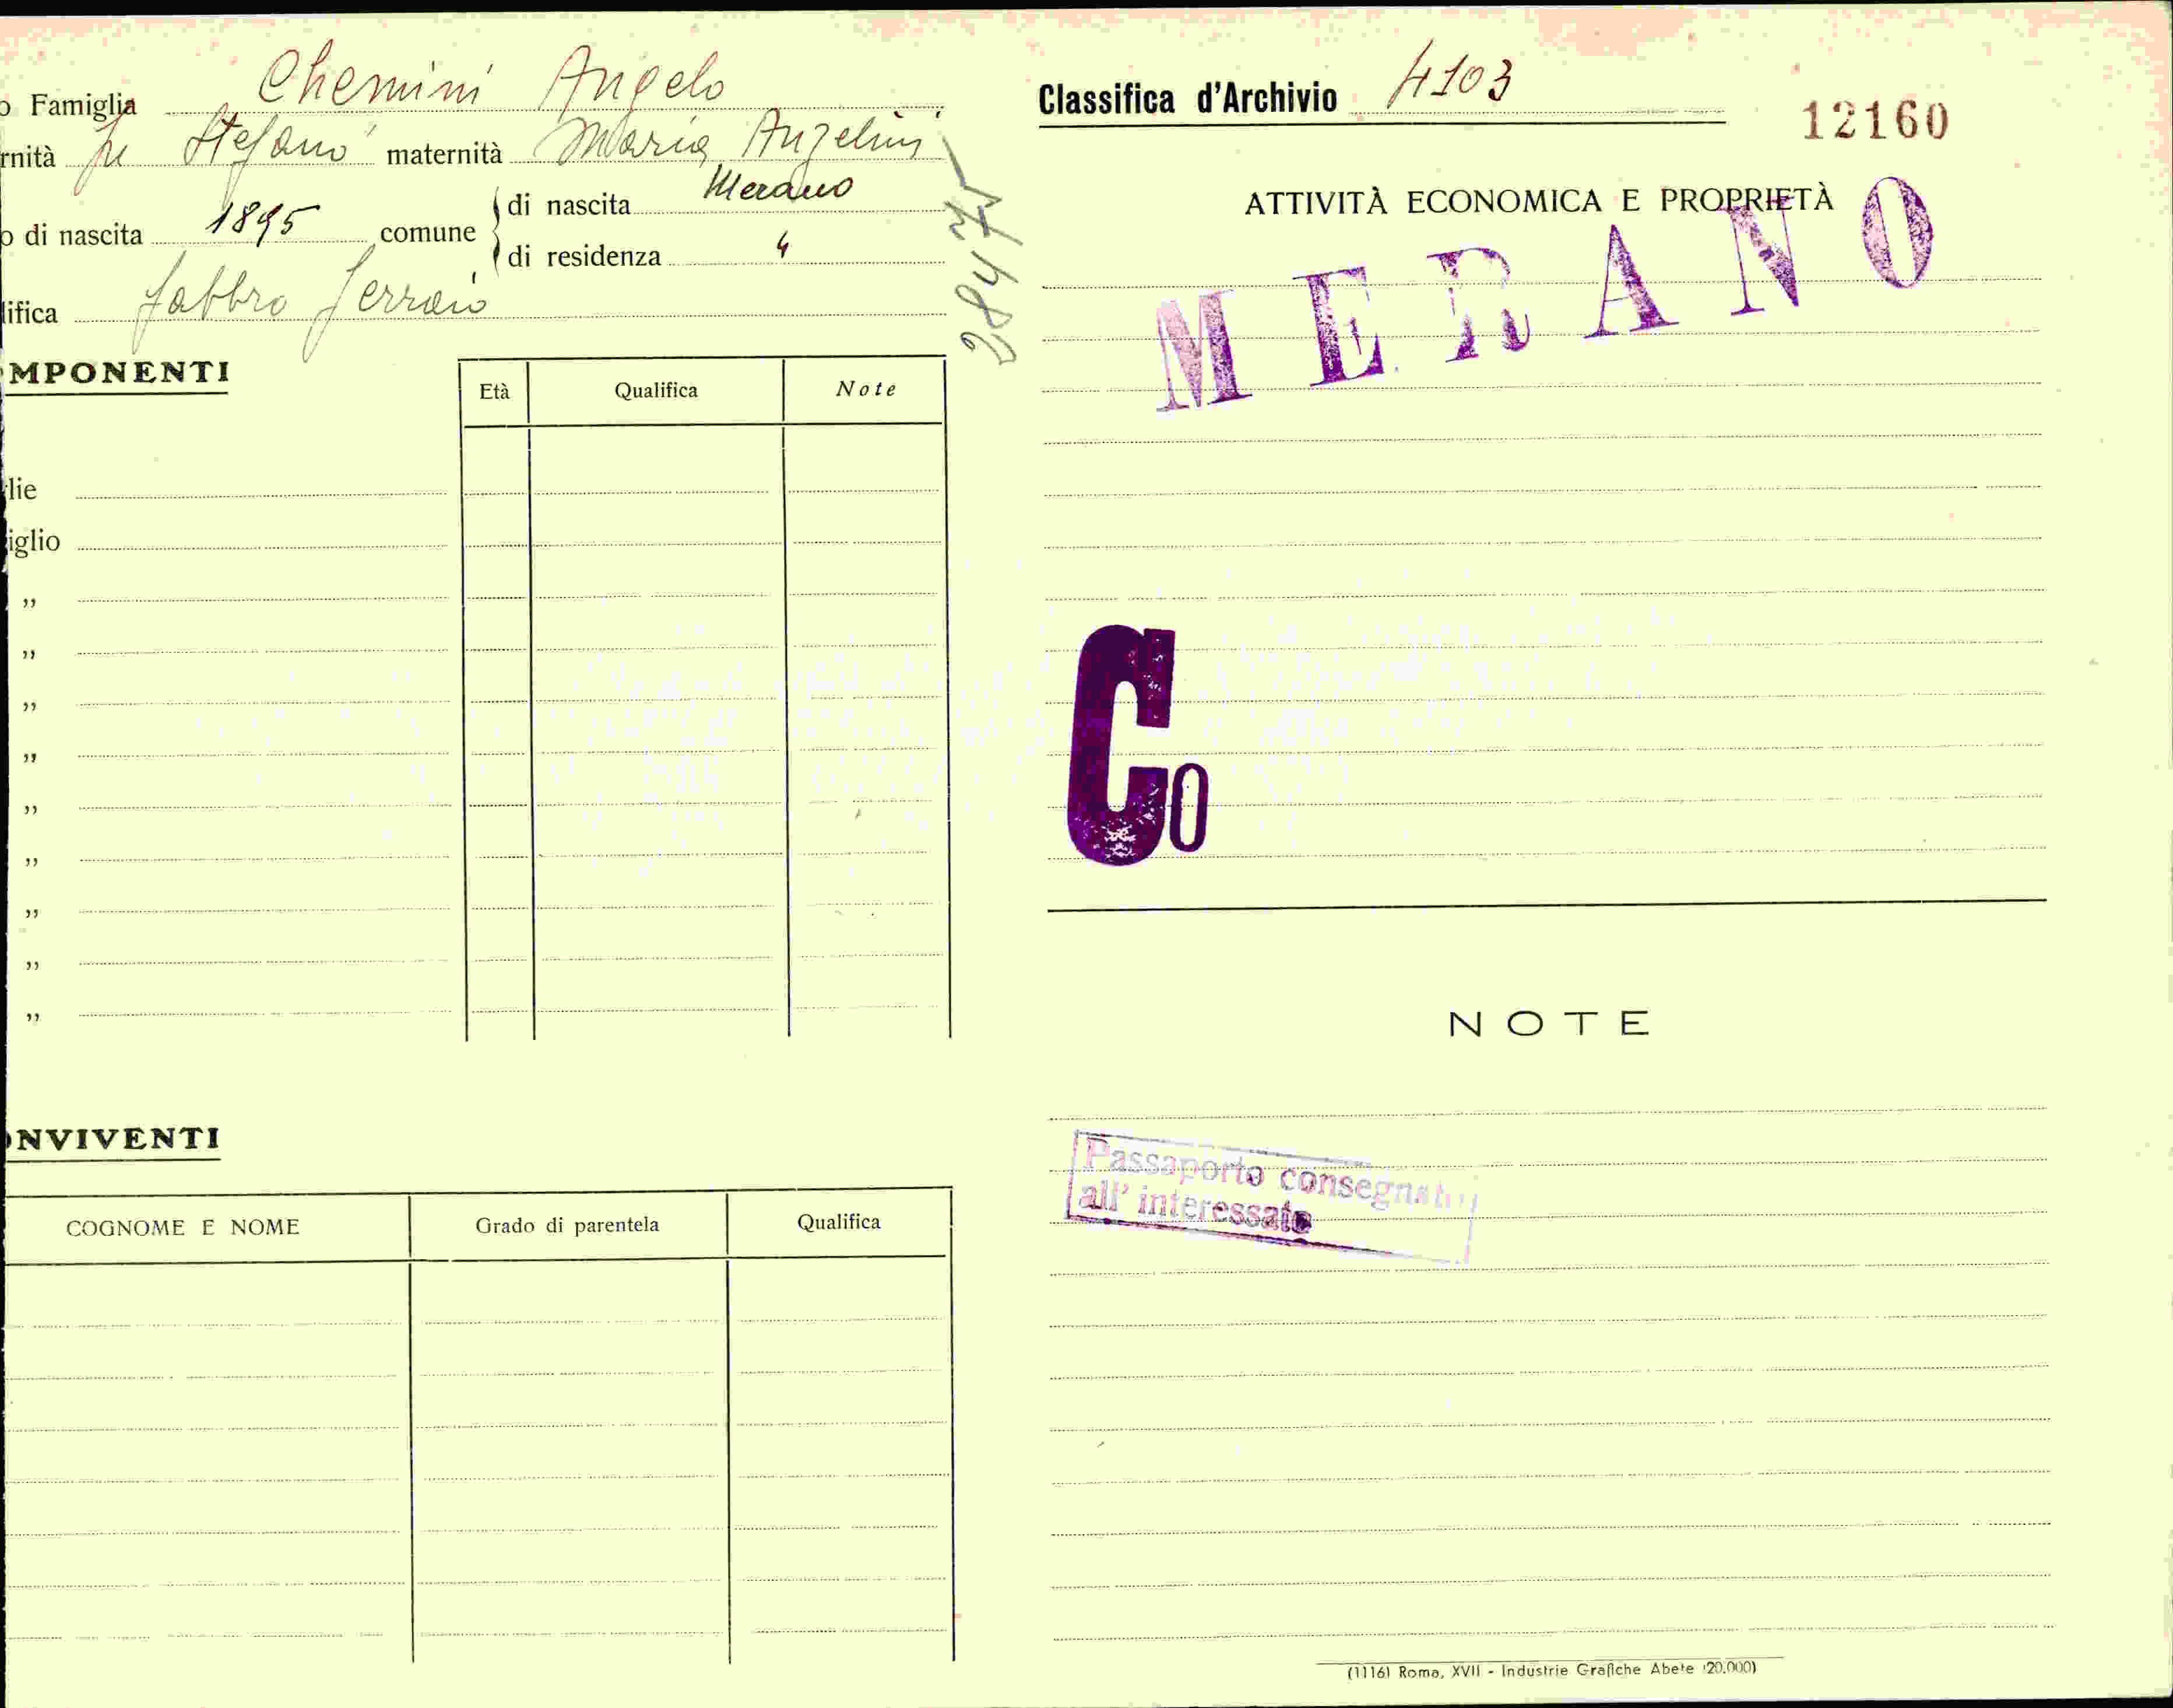 o Famiglia Chemini Angelo
rnità fu Stefano maternità Maria Anzelini
o di nascita 1895 comune
di nascita Merano
di residenza "
lifica fabbro ferraio
28475
MPONENTI
Età Qualifica Note
lie
iglio
"
"
"
"
"
"
"
"
"
NVIVENTI
COGNOME E NOME Grado di parentela Qualifica
Classifica d'Archivio 4103
12160
ATTIVITÀ ECONOMICA E PROPRIETÀ
MERANO
Co
NOTE
Passaporto consegnato
all' interessato
(1116) Roma, XVII - Industrie Grafiche Abete (20.000)